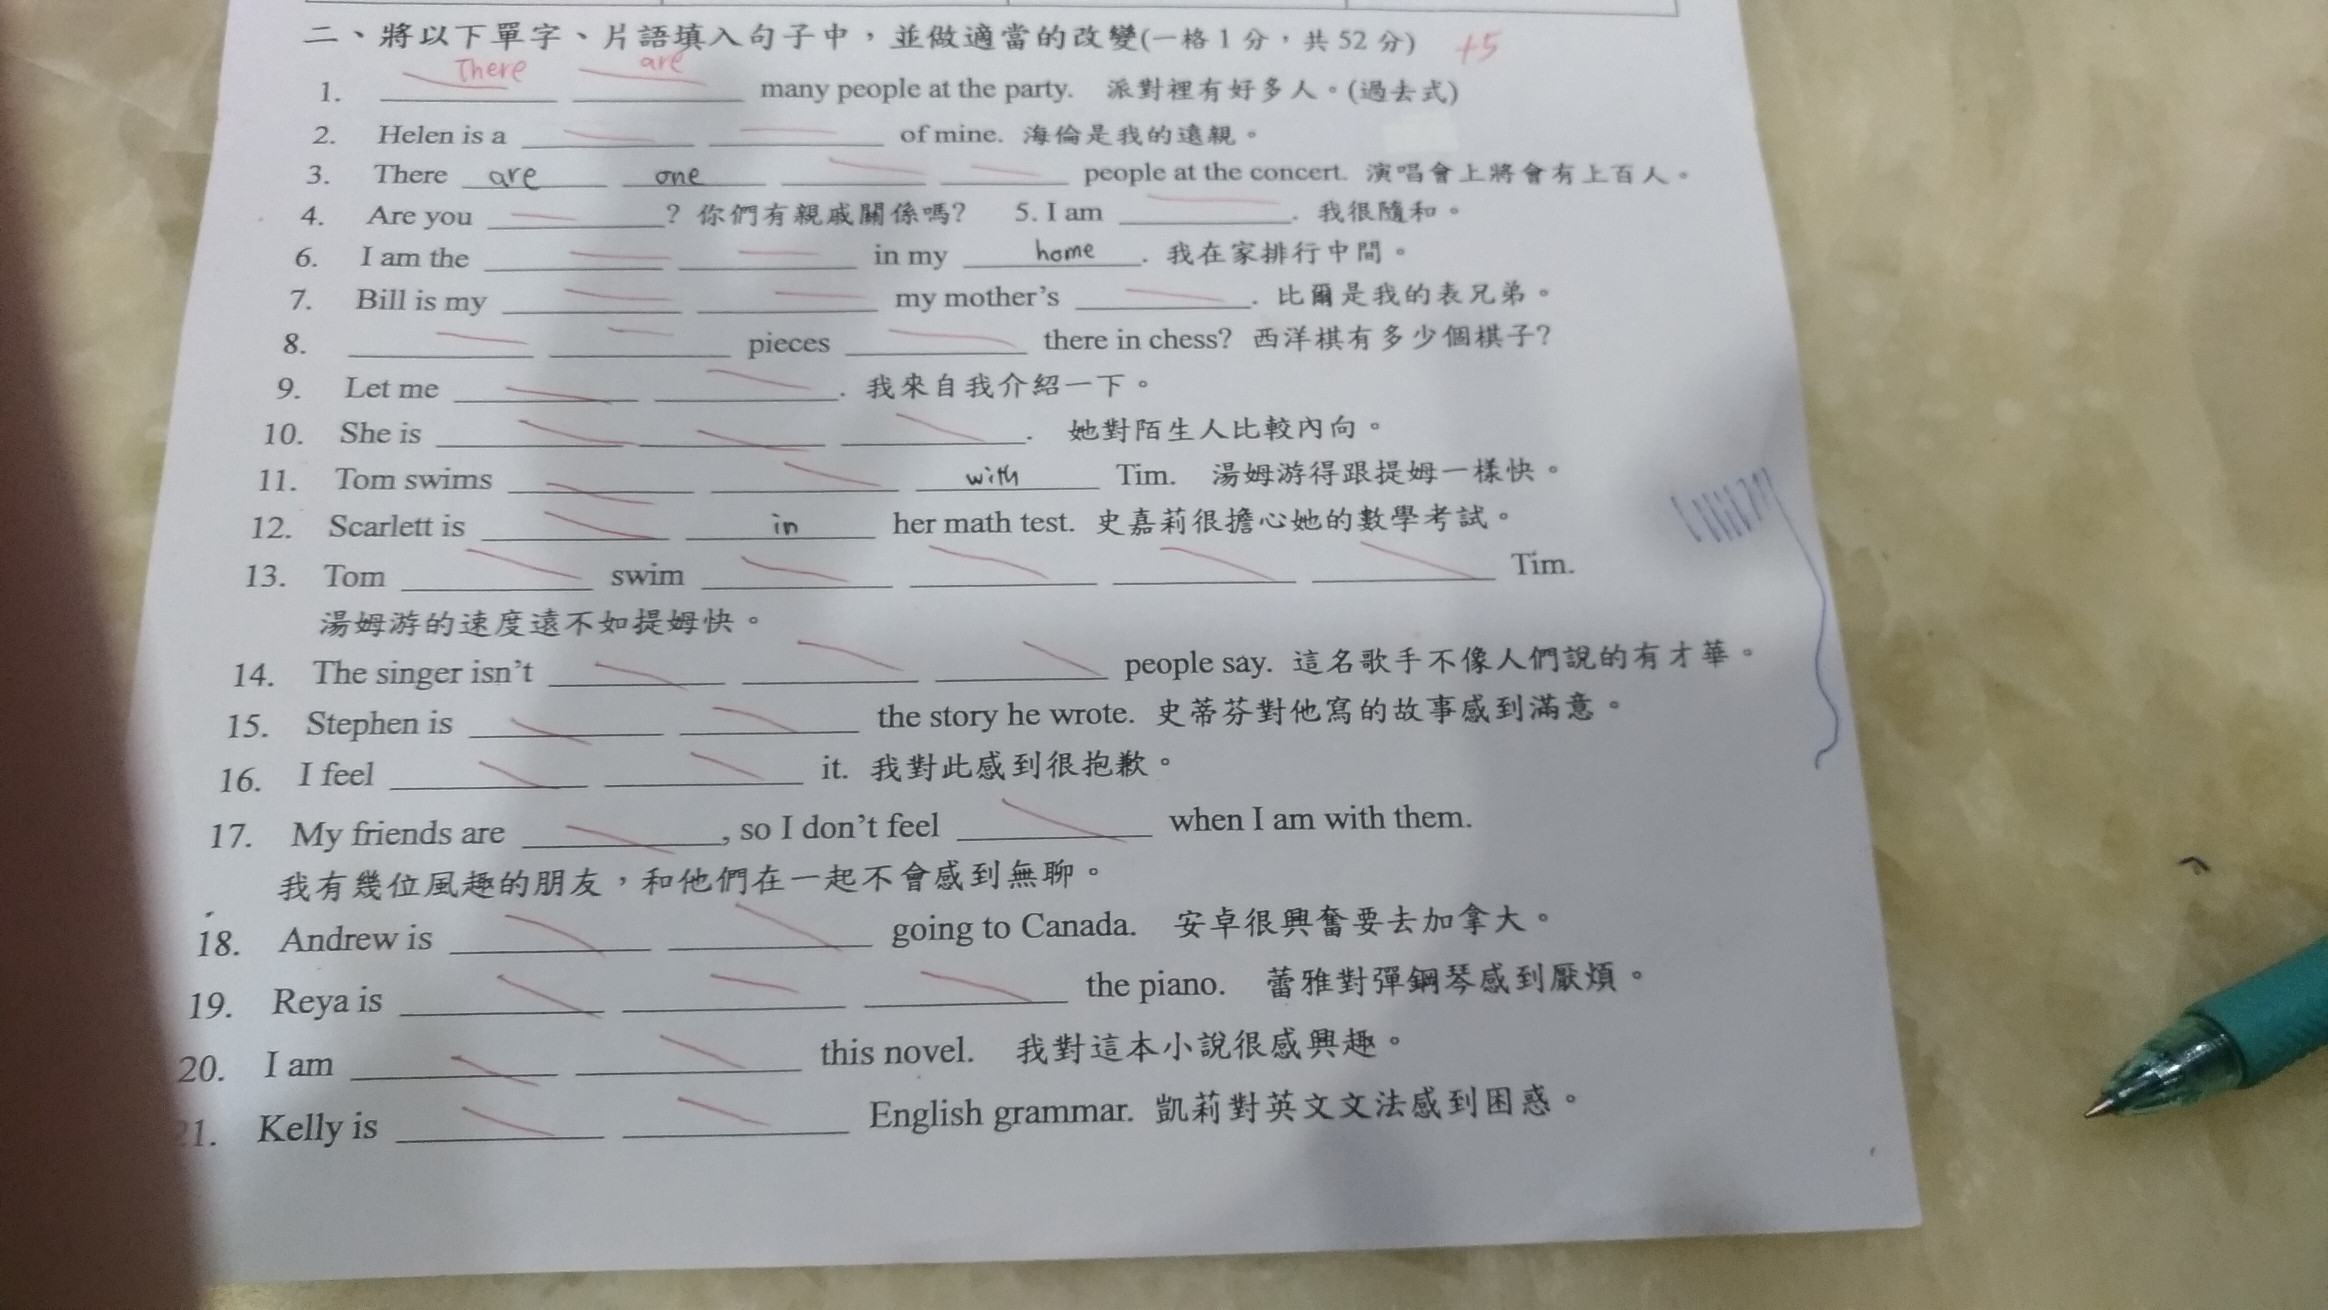 二、將以下單字、片語填入句子中，並做適當的改變(一格 1 分，共 52 分) +5
1. There are many people at the party. 派對裡有好多人。(過去式)
2. Helen is a ______ ______ of mine. 海倫是我的遠親。
3. There are one ______ ______ people at the concert. 演唱會上將會有上百人。
4. Are you ______? 你們有親戚關係嗎? 5. I am ______. 我很隨和。
6. I am the ______ ______ in my home. 我在家排行中間。
7. Bill is my ______ ______ my mother's ______. 比爾是我的表兄弟。
8. ______ ______ pieces ______ there in chess? 西洋棋有多少個棋子?
9. Let me ______ ______. 我來自我介紹一下。
10. She is ______ ______ ______. 她對陌生人比較內向。
11. Tom swims ______ ______ with Tim. 湯姆游得跟提姆一樣快。
12. Scarlett is ______ in her math test. 史嘉莉很擔心她的數學考試。
13. Tom ______ swim ______ ______ ______ ______ Tim.
湯姆游的速度遠不如提姆快。
14. The singer isn't ______ ______ ______ people say. 這名歌手不像人們說的有才華。
15. Stephen is ______ ______ the story he wrote. 史蒂芬對他寫的故事感到滿意。
16. I feel ______ ______ it. 我對此感到很抱歉。
17. My friends are ______, so I don't feel ______ when I am with them.
我有幾位風趣的朋友，和他們在一起不會感到無聊。
18. Andrew is ______ ______ going to Canada. 安卓很興奮要去加拿大。
19. Reya is ______ ______ ______ the piano. 蕾雅對彈鋼琴感到厭煩。
20. I am ______ ______ this novel. 我對這本小說很感興趣。
21. Kelly is ______ ______ English grammar. 凱莉對英文文法感到困惑。